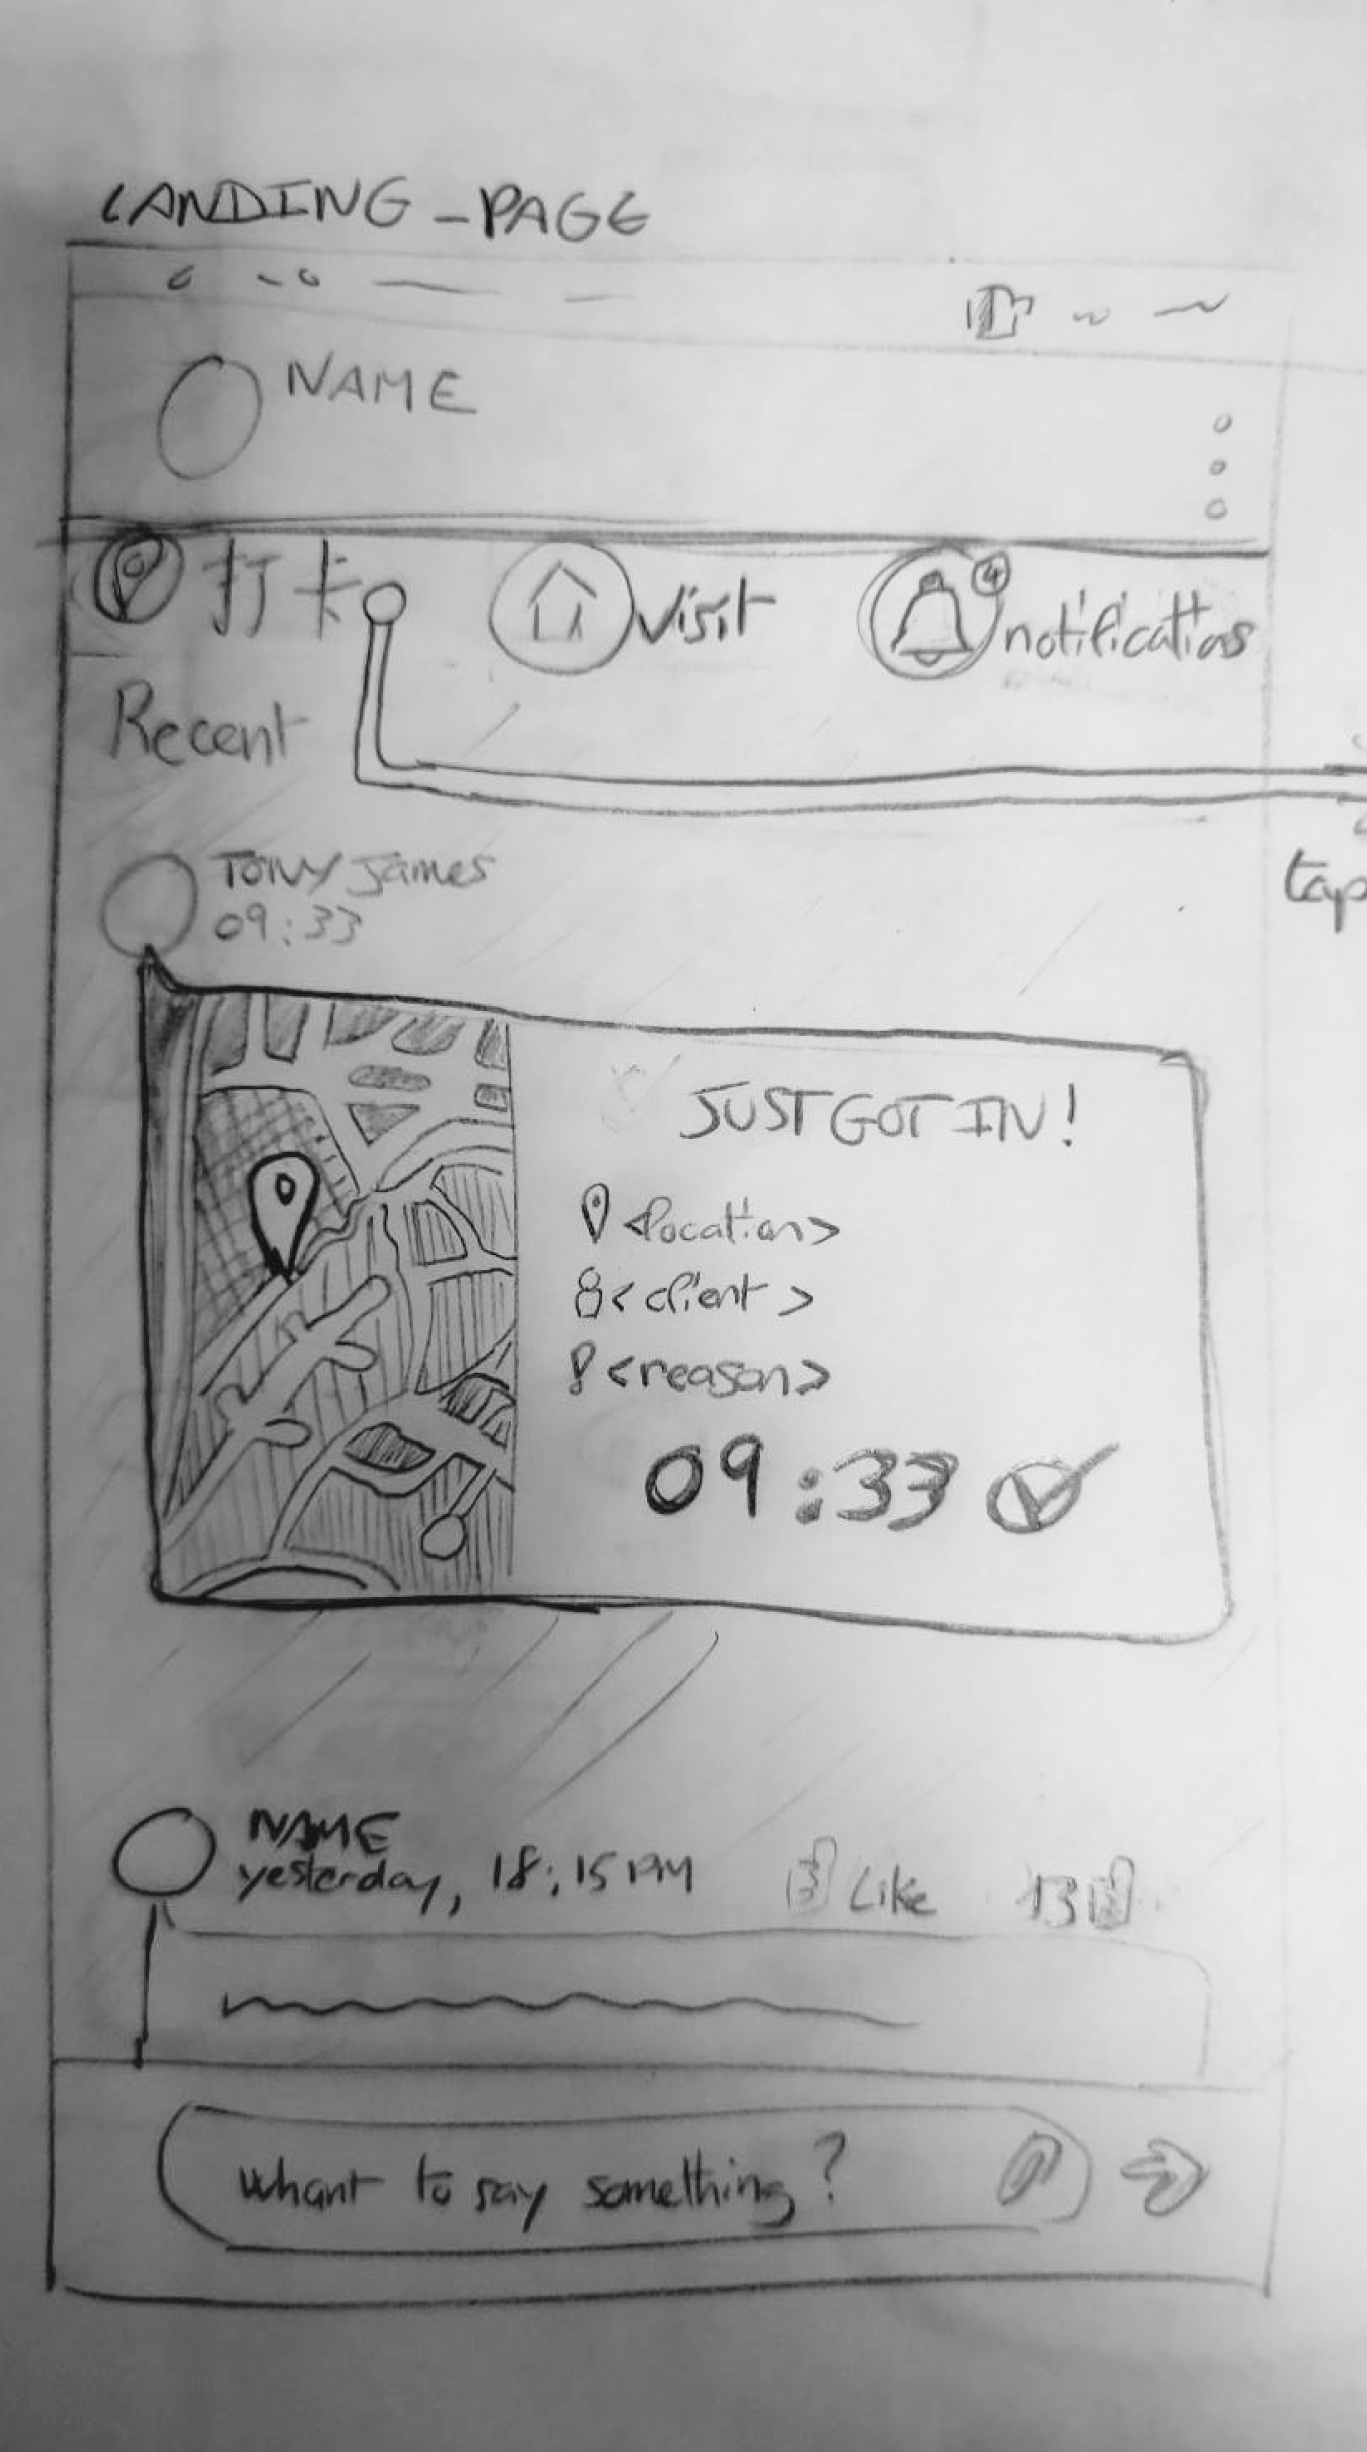 LANDING-PAGE
NAME
打卡 visit 4 notifications
Recent
tap
Tony James
09:33
JUST GOT IN!
<location>
<client>
<reason>
09:33
NAME
yesterday, 18:15 PM Like 13
whant to say something?